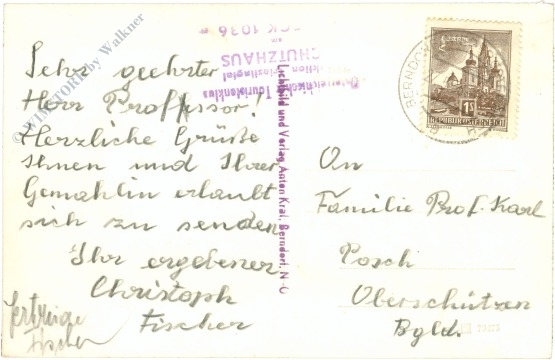 Sehr geehrter
Herr Proffessor!
Herzliche Grüße
Ihnen und Ihrer
Gemahlin erlaubt
sich zu senden
Ihr ergebener
Christoph
Fischer
Fischer
An
Familie Prof. Karl
Posch
Oberschützen
Bgld.
Lichtbild und Verlag Anton Kral, Berndorf, N.-Ö
1036 m
SCHUTZHAUS
Touristenklub
BERNDORF
1S
REPUBLIK ÖSTERREICH
© WIMSTORE by Walkner